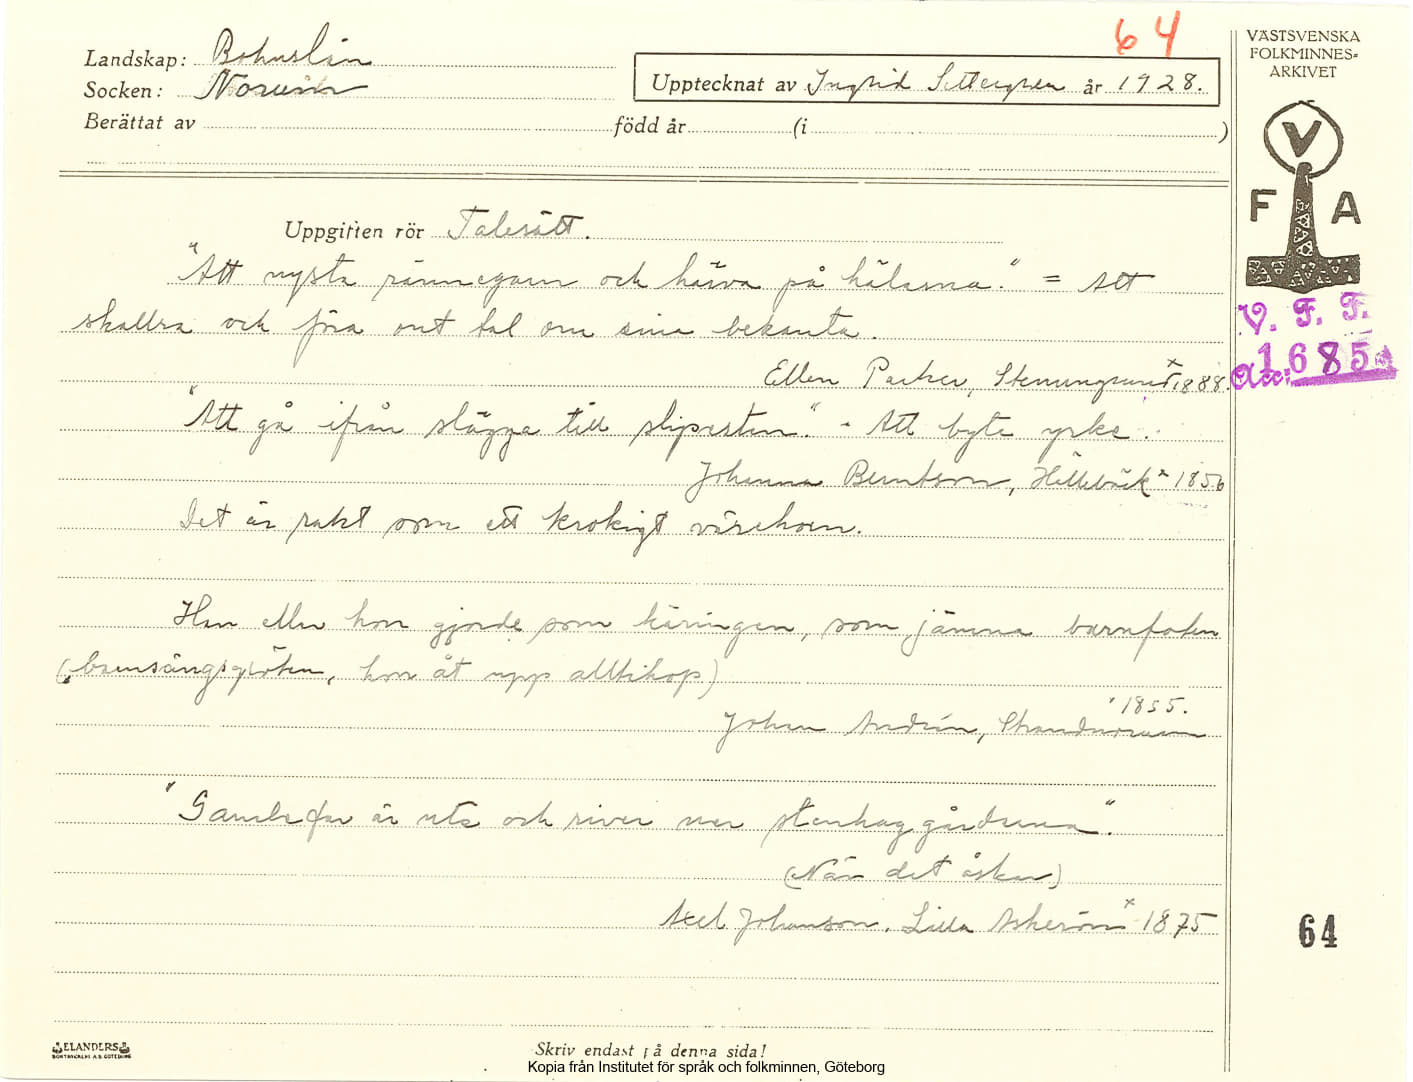 64
Landskap: Bohuslän
Socken: Norum
Upptecknat av Ingrid Settergren år 1928.
Berättat av född år (i )
VÄSTSVENSKA
FOLKMINNES=
ARKIVET
V
F A
Uppgiften rör Talesätt.
"Att nysta rännegarn och härva på hälarna." = Att
skallra och föra ont tal om sina bekanta.
Ellen Parker, Stenungsund x 1888.
V. F. F.
Acc: 1685
"Att gå ifrån slägga till slipesten." - Att byta yrke.
Johanna Berntson, Hällebäck x 1856
Det är rakt som ett krokigt värehorn.
Han eller hon gjorde som käringen, som jämna barnfoten
(barnsängsgröten, hon åt upp alltihop)
1855.
Johan Andrén, Strandnorum
"Gamlefar är ute och river ner stenhaggårdarna".
(När det åsker)
Axel Johanson, Lilla Askerön x 1875
64
ELANDERS
BOKTRYCKERI A.B. GÖTEBORG
Skriv endast på denna sida!
Kopia från Institutet för språk och folkminnen, Göteborg